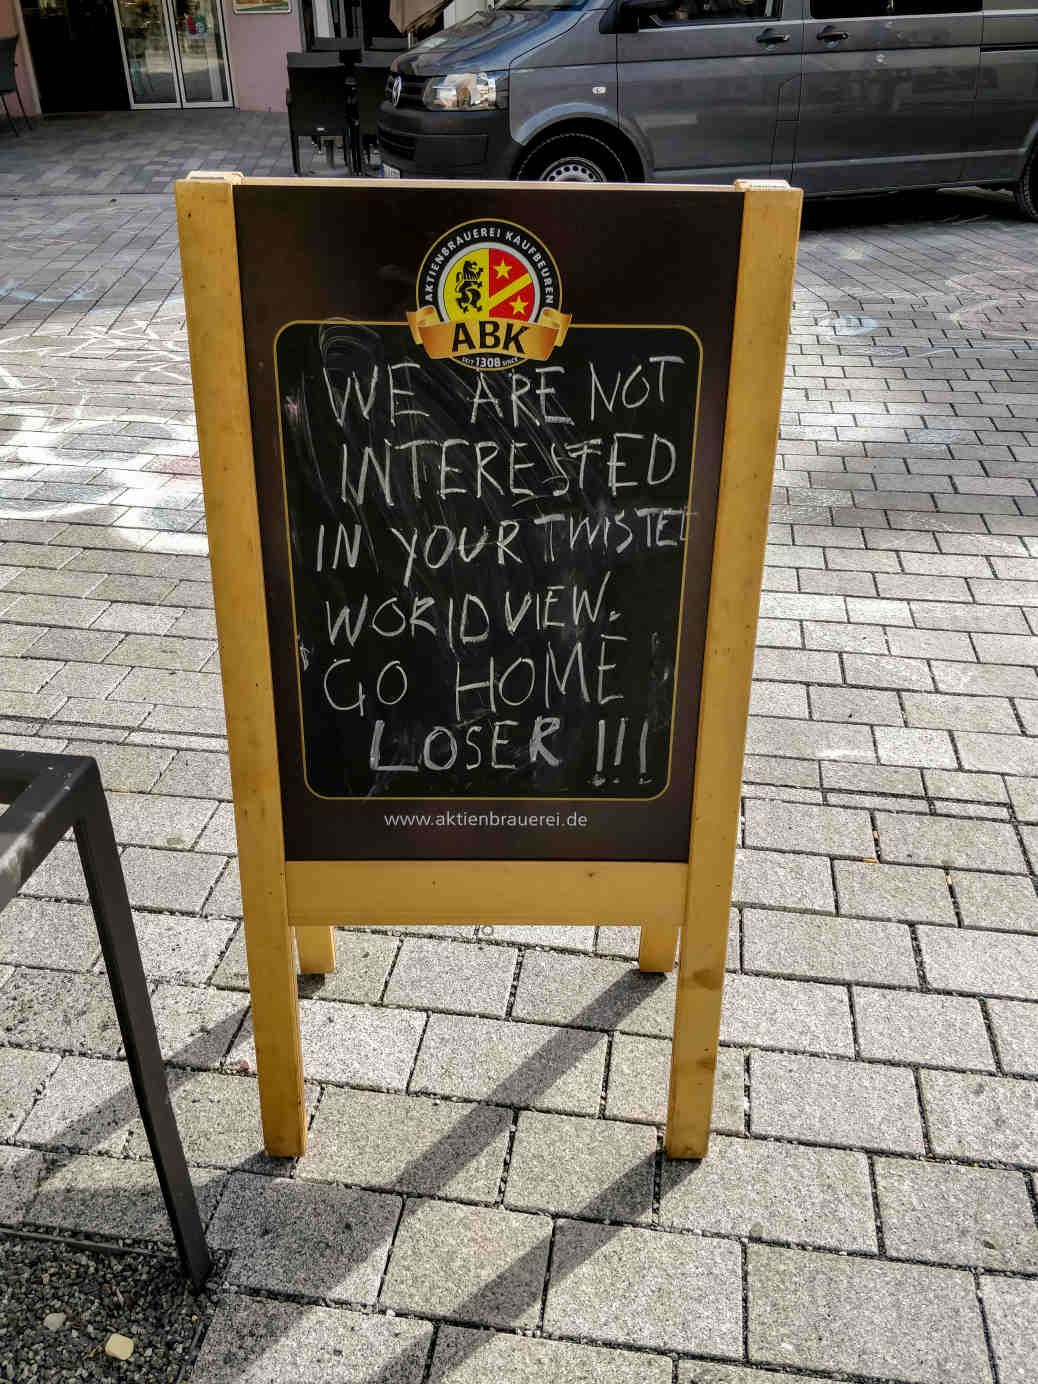 AKTIENBRAUEREI KAUFBEUREN
ABK
SEIT 1308 SINCE
WE ARE NOT
INTERESTED
IN YOUR TWISTED
WORLDVIEW.
GO HOME
LOSER !!!
www.aktienbrauerei.de